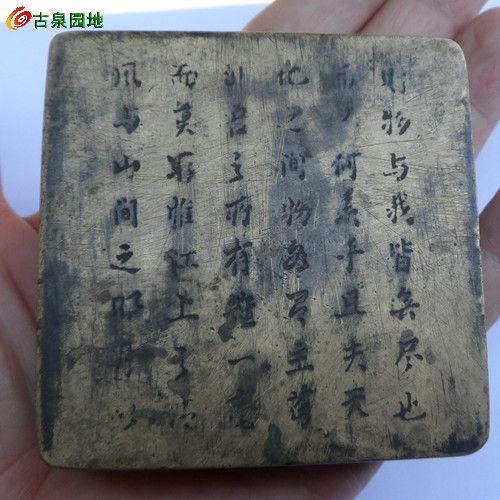 古泉园地
则物与我皆无尽也
而又何羡乎且夫天
地之間物各有主苟
非吾之所有雖一毫
而莫取惟江上之清
風与山間之明月